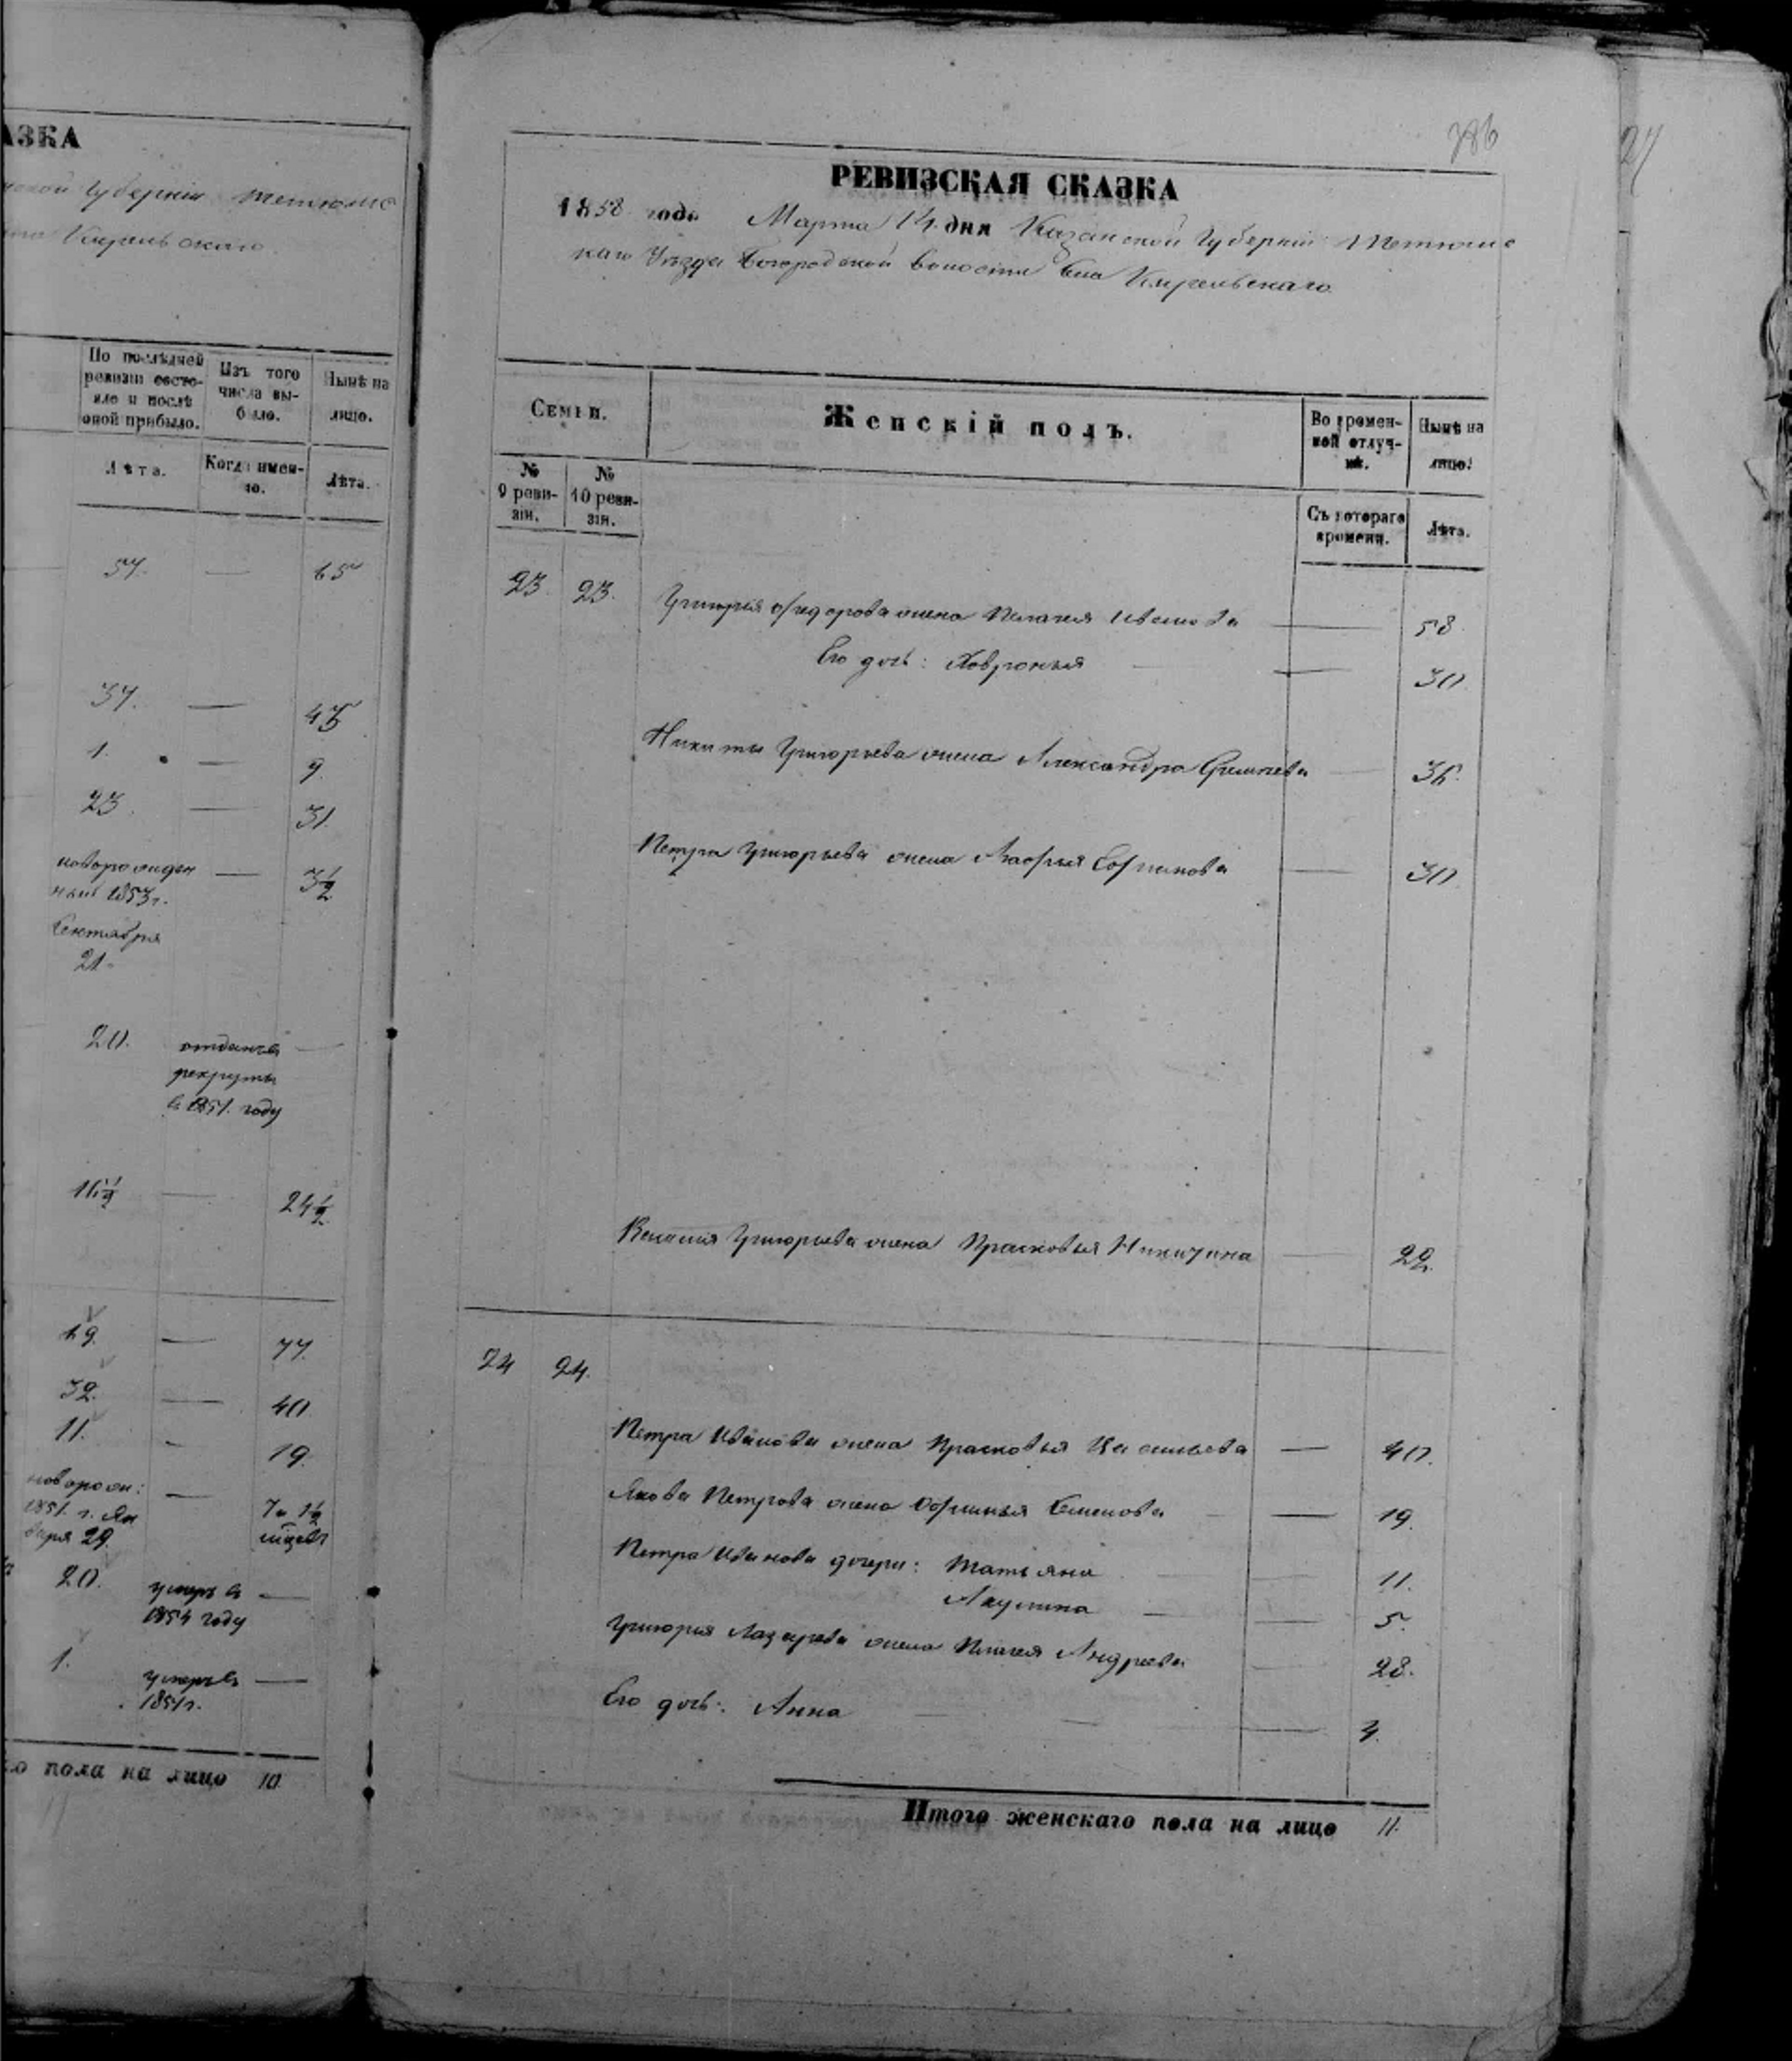 АЗКА
Губерніи Тетюшс
Кирельскаго
По послѣдней
ревизіи состо-
яло и послѣ
оной прибыло.
Изъ того
числа вы-
было.
Нынѣ на
лицо.
Лѣта.
Когда имен-
но.
Лѣта.
57. — 65
37. — 45
1. — 9
23. — 31.
новорожден — 3½
ный 1853 г.
Сентября
21.
20. отданъ въ —
рекруты
въ 1851. году
16½ — 24½
69. — 77.
32. — 40
11. — 19.
новорож: — 7 и 1½
1851. г. Ян мцовъ
варя 29
20. умеръ въ —
1854 году
1. умеръ въ —
1851 г.
пола на лицо 10.
786
27
РЕВИЗСКАЯ СКАЗКА
1858 года Марта 14 дня Казанской Губерніи Тетюшс
каго Уѣзда Богородской волости села Кирельскаго
Семьи.
Женскій полъ.
Во времен-
ной отлуч-
кѣ.
Нынѣ на
лицо.
№
9 реви-
зіи.
№
10 реви-
зіи.
Съ котораго
времени.
Лѣта.
23. 23. Григорья Ѳедорова жена Пелагея Иванова — 58.
Его дочь: Хавронья — 30
Никиты Григорьева жена Александра — 36.
Петра Григорьева жена Марфа — 30
Григорьева жена Прасковья Никитина — 22.
24 24.
Петра Иванова жена Прасковья Васильева — 40.
Якова Петрова жена Ефимья Семенова — 19.
Петра Иванова дочери: Татьяна — 11.
Акулина — 5.
Григорья Лазарева жена Пелагея Андреева — 28.
Его дочь: Анна — 4.
Итого женскаго пола на лицо 11.